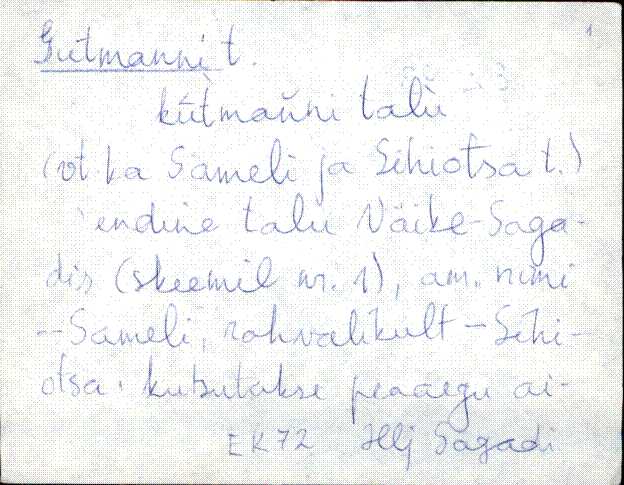 1
Gutmanni t.
kùtmaǹni talù
(vt. ka Sameli ja Sihiotsa t.)
endine talu Väike-Saga-
dis (skeemil nr. 1), am. nimi
- Sameli, rahvalikult - Sihi-
otsa. kutsutakse peaaegu ai-
EK72 Hlj Sagadi